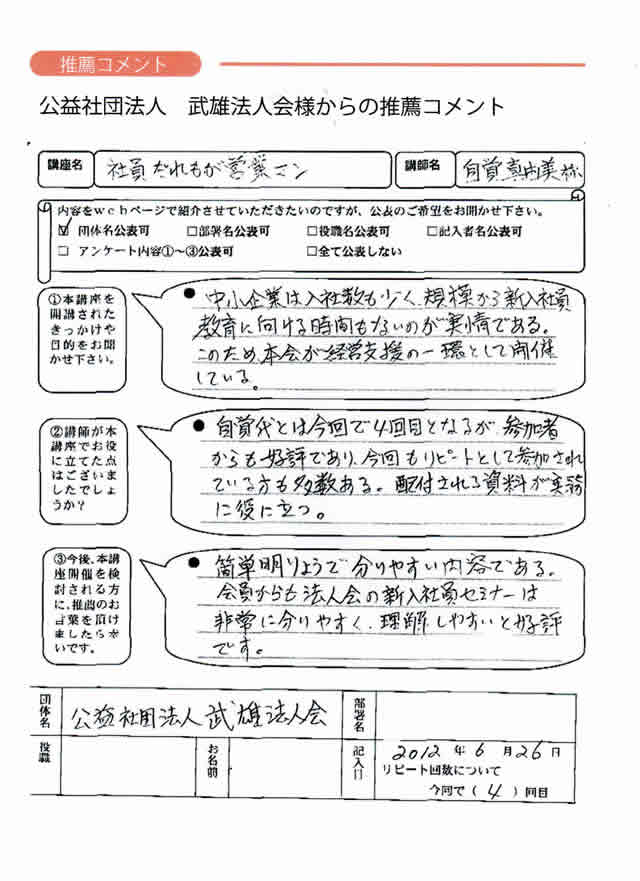 推薦コメント
公益社団法人 武雄法人会様からの推薦コメント
講座名 社員だれもが営業マン 講師名 自賀真由美様
内容をwebページで紹介させていただきたいのですが、公表のご希望をお聞かせ下さい。
☑ 団体名公表可 □部署名公表可 □役職名公表可 □記入者名公表可
□ アンケート内容①～③公表可 □全て公表しない
①本講座を
開講された
きっかけや
目的をお聞
かせ下さい。
● 中小企業は入社数も少く、規模から新入社員
教育に向ける時間もないのが実情である。
このため、本会が経営支援の一環として開催
している。
②講師が本
講座でお役
に立てた点
はございま
したでしょ
うか?
● 自賀代とは今回で4回目となるが、参加者
からも好評であり、今回もリピートとして参加され
ている方も多数ある。配付される資料が実務
に役に立つ。
③今後、本講
座開催を検
討される方
に、推薦のお
言葉を頂け
ましたら幸
いです。
● 簡単明りょうで分りやすい内容である。
会員からも法人会の新入社員セミナーは
非常に分りやすく、理解しやすいと好評
です。
団体名 公益社団法人 武雄法人会 部署名
役職 お名前 記入日 2012 年 6 月 26 日
リピート回数について
今回で( 4 )回目